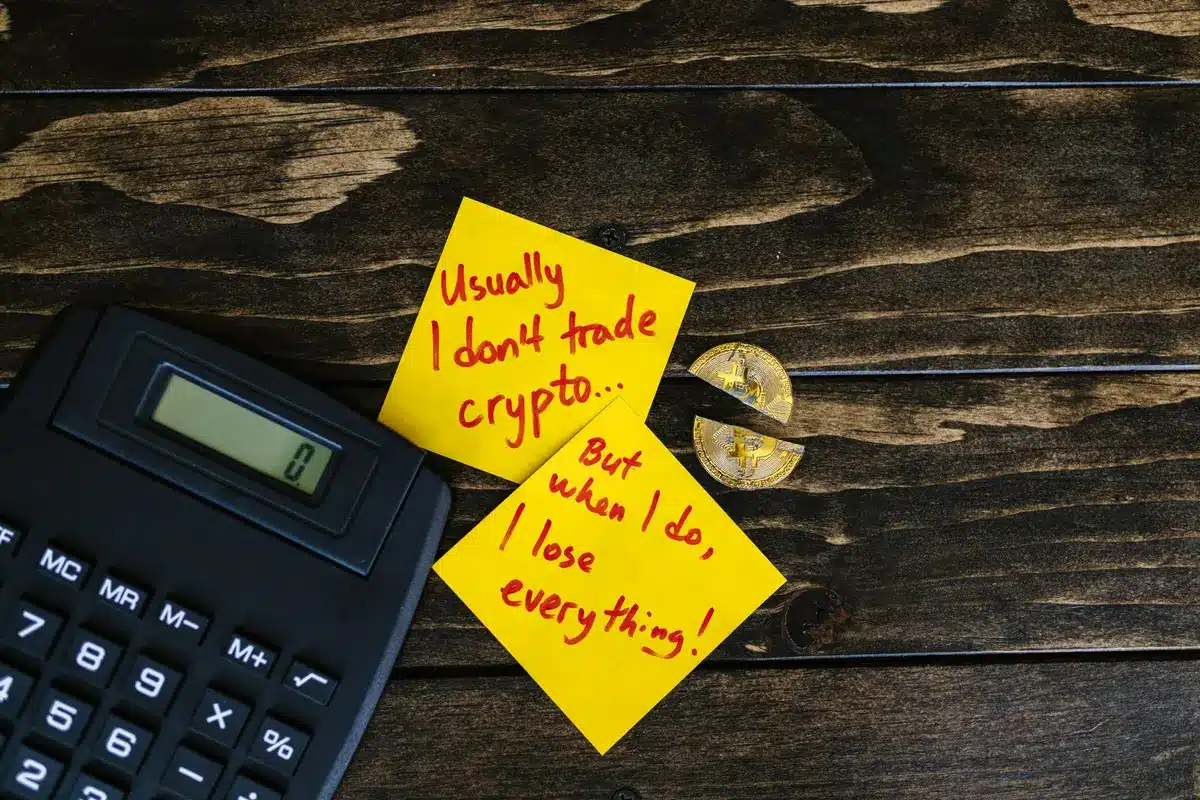 Usually
I don't trade
crypto...
But
when I do,
I lose
everything!
0
MC
MR
M−
M+
√
7
8
9
×
%
4
5
6
−
2
3
÷